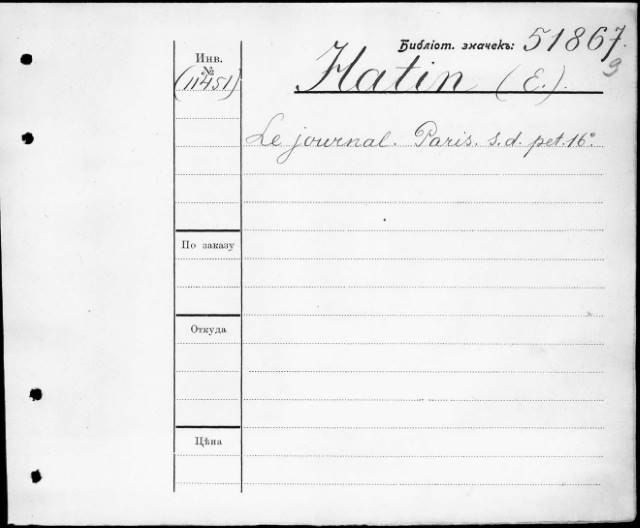 Библіот. значекъ: 51867
9
Инв.
№
(11451)
Hatin (E.).
Le journal. Paris. s.d. pet. 16°.
По заказу
Откуда
Цѣна